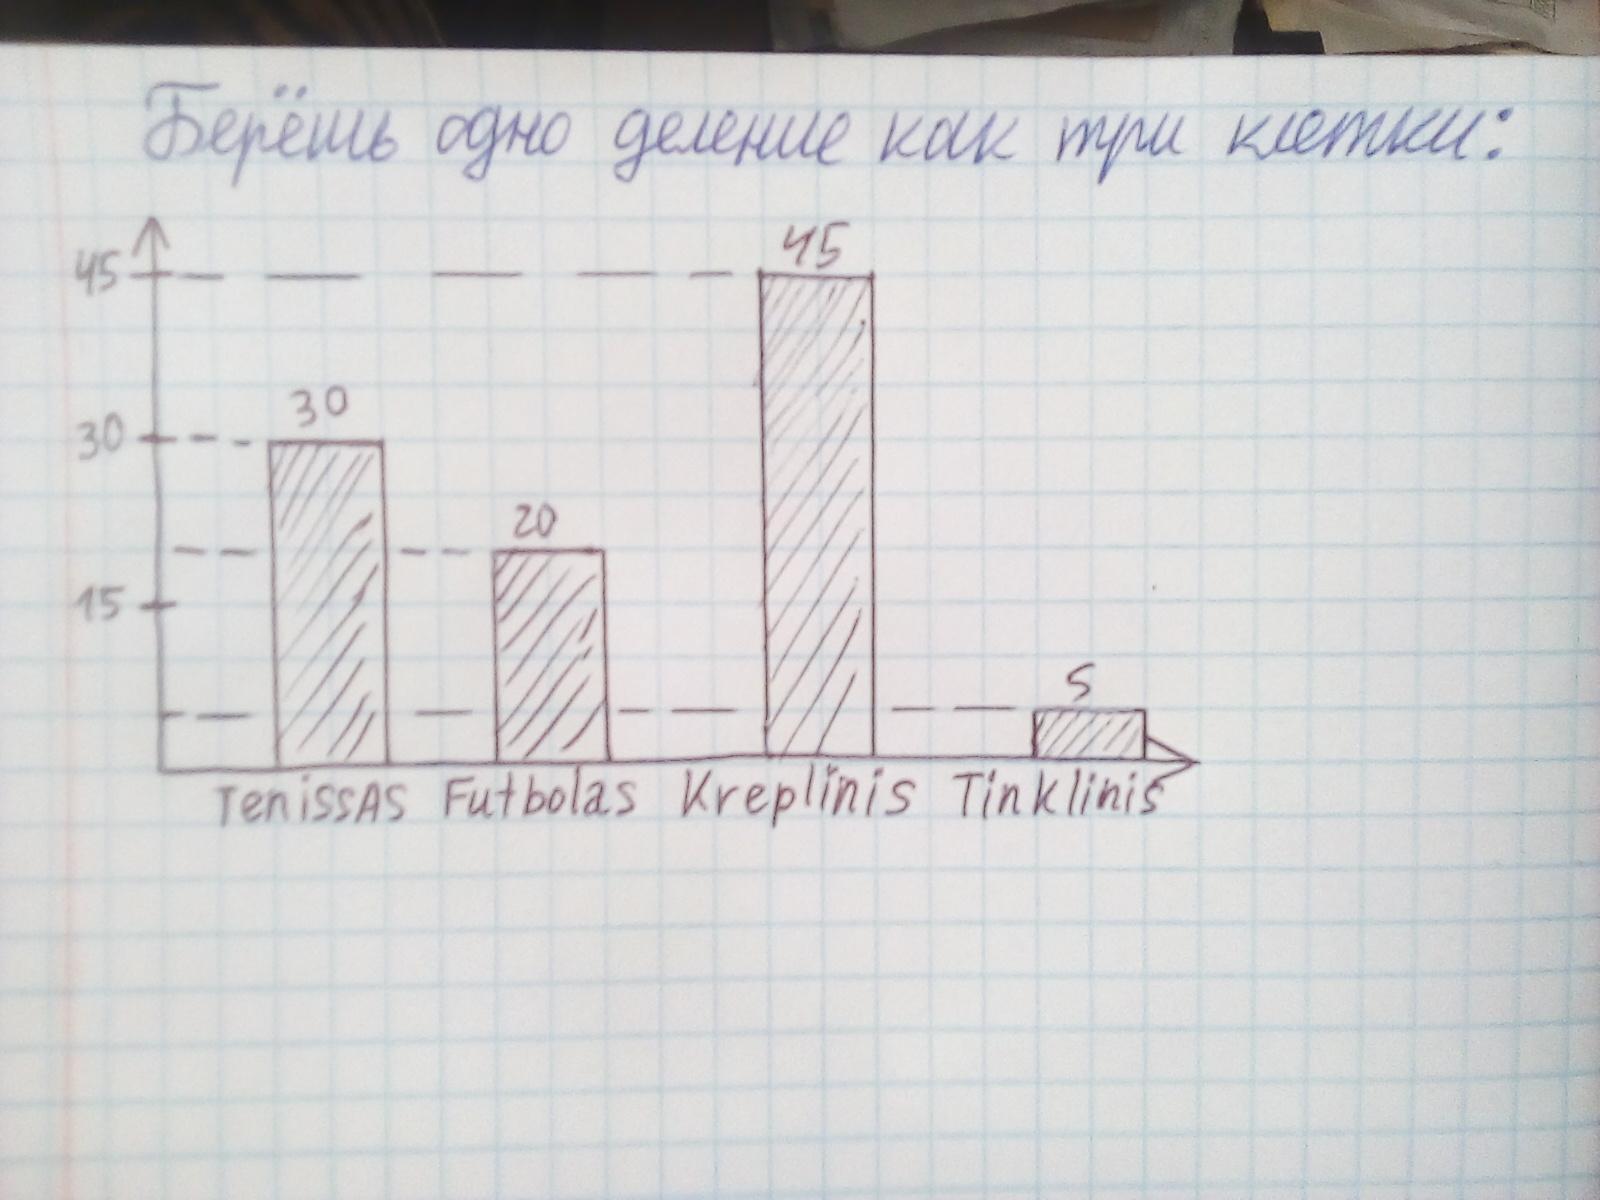 Берёшь одно деление как три клетки:
45
45
30
30
20
15
5
TenissAs Futbolas Kreplinis Tinklinis